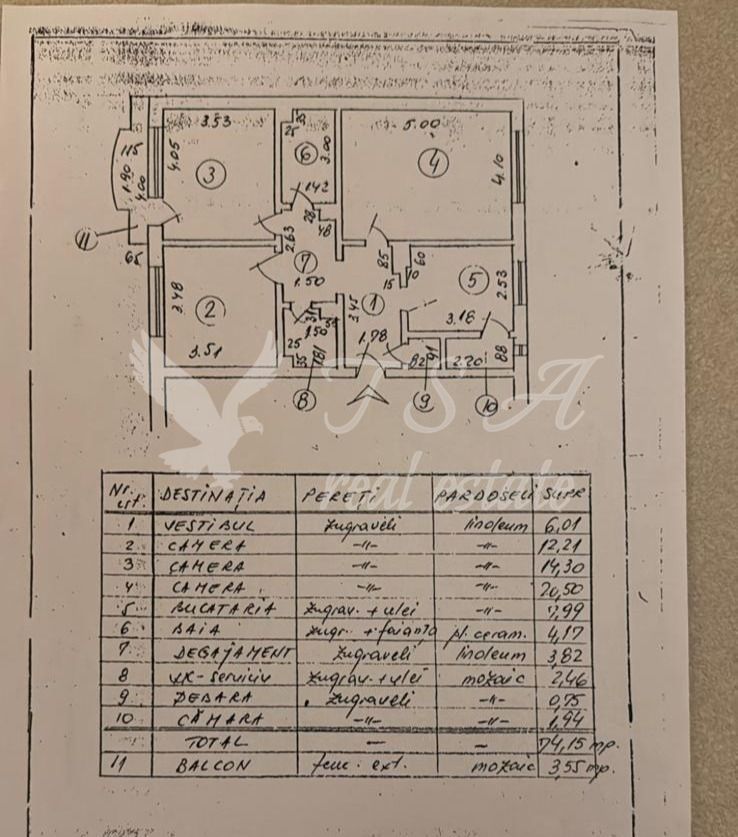 3.53
5.00
35
25
6
3.00
4.05
3
4
4.10
115
1.90
4.00
1.42
28
48
11
2.63
65
7
85
60
10
15
5
2.53
1.50
3.48
2
1
3.45
3.16
3.51
1.50
25
35
1.81
1.78
82
91
2.20
88
8
9
10
TSA
real estate
Nr. crt. DESTINAȚIA PEREȚI PARDOSELI SUPR
1 VESTIBUL zugraveli linoleum 6,01
2 CAMERA -"- -"- 12,21
3 CAMERA -"- -"- 14,30
4 CAMERA -"- -"- 20,50
5 BUCATARIA zugrav. + ulei -"- 7,99
6 BAIA zugr. + faianța pl. ceram. 4,17
7 DEGAJAMENT zugraveli linoleum 3,82
8 WC-serviciu zugrav. + ulei mozaic 2,46
9 DEBARA zugraveli -"- 0,75
10 CĂMARA -"- -"- 1,94
TOTAL — — 74,15 mp.
11 BALCON tenc. ext. mozaic 3,55 mp.